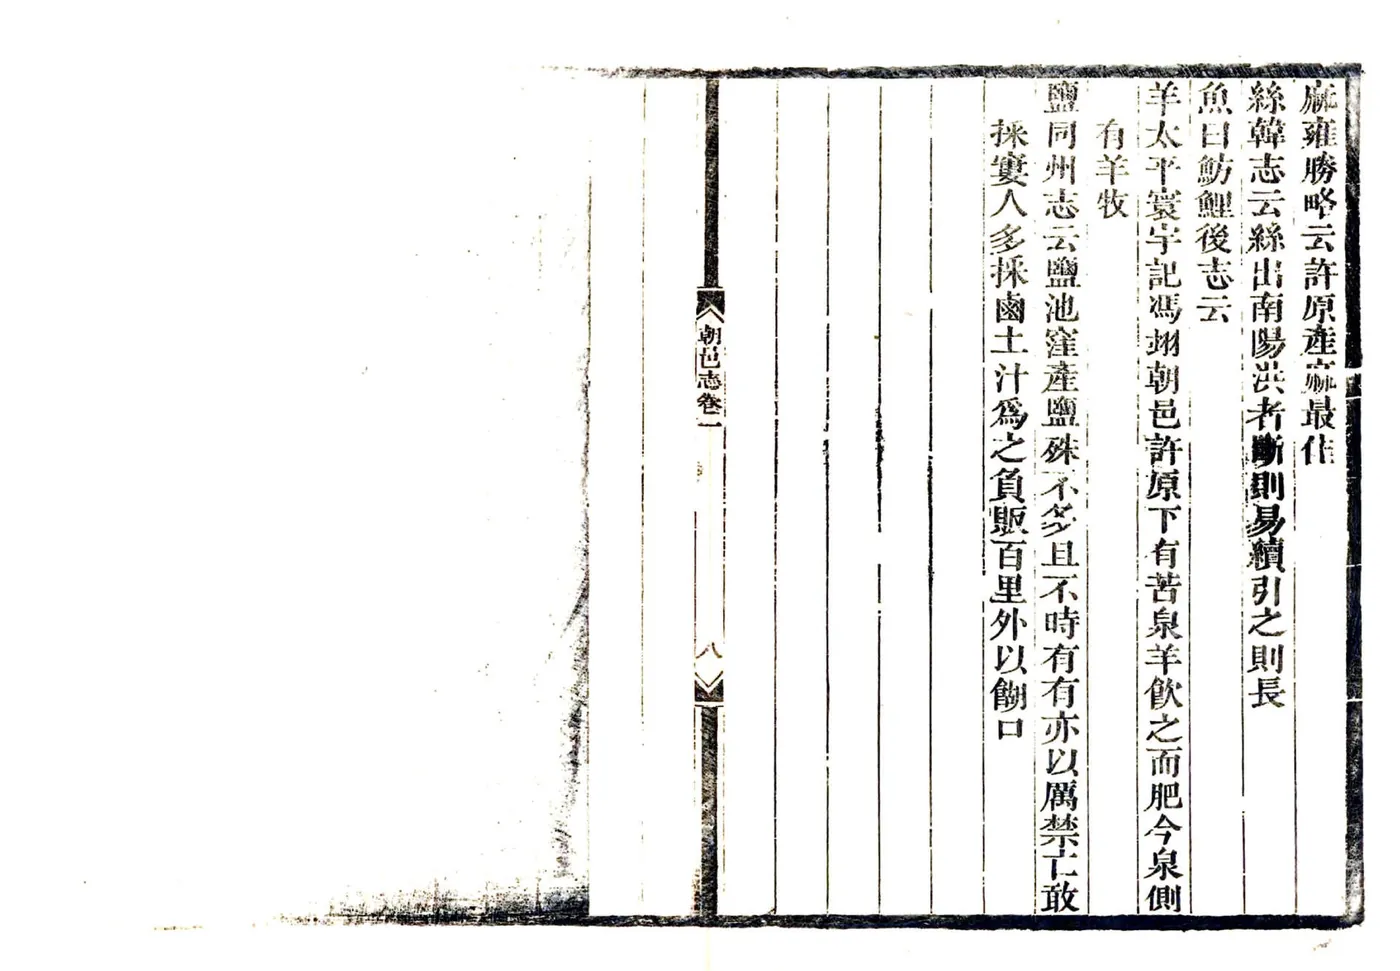 麻雍勝略云許原產麻最佳
絲韓志云絲出南陽洪者斷則易續引之則長
魚曰魴鯉後志云
羊太平寰宇記馮翊朝邑許原下有苦泉羊飲之而肥今泉側
有羊牧
鹽同州志云鹽池窪產鹽殊不多且不時有有亦以厲禁亡敢
採寠人多採鹵土汁爲之負販百里外以餬口
朝邑志卷二
八